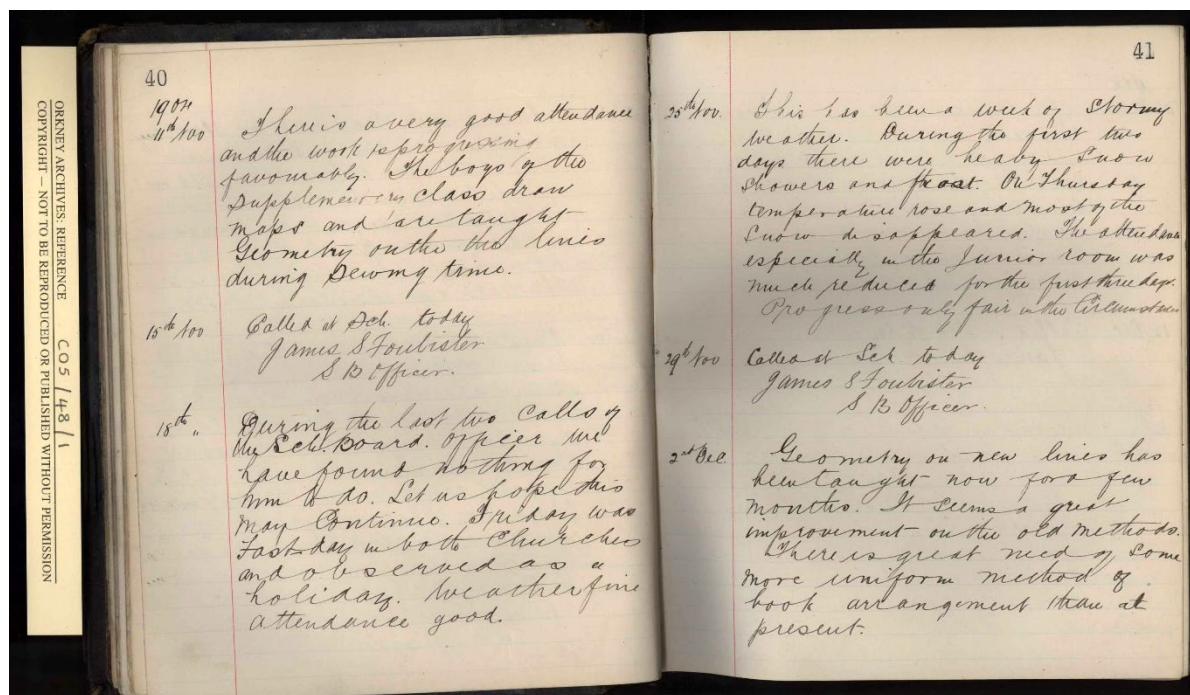 ORKNEY ARCHIVES: REFERENCE CO5/48/1
COPYRIGHT – NOT TO BE REPRODUCED OR PUBLISHED WITHOUT PERMISSION
40
1904
11th Nov There is a very good attendance
and the work is progressing
favourably. The boys of the
Supplementary class draw
maps and are taught
Geometry on the the lines
during Sewing time.
15th Nov Called at Sch. today
James S Foubister
S B Officer.
18th " During the last two calls of
the Sch. Board. Officer we
have found nothing for
him to do. Let us hope this
may Continue. Friday was
Fast-day in both Churches
and observed as a
holiday. Weather fine
attendance good.
41
25th Nov. This has been a week of Stormy
weather. During the first two
days there were heavy Snow
Showers and frost. On Thursday
temperature rose and most of the
Snow disappeared. The attendance
especially in the Junior room was
much reduced for the first three days.
Progress only fair in the Circumstances
29th Nov Called at Sch today
James S Foubister
S B Officer.
2nd Dec. Geometry on new lines has
been taught now for a few
months. It seems a great
improvement on the old methods.
There is great need of Some
more uniform method of
book arrangement than at
present.